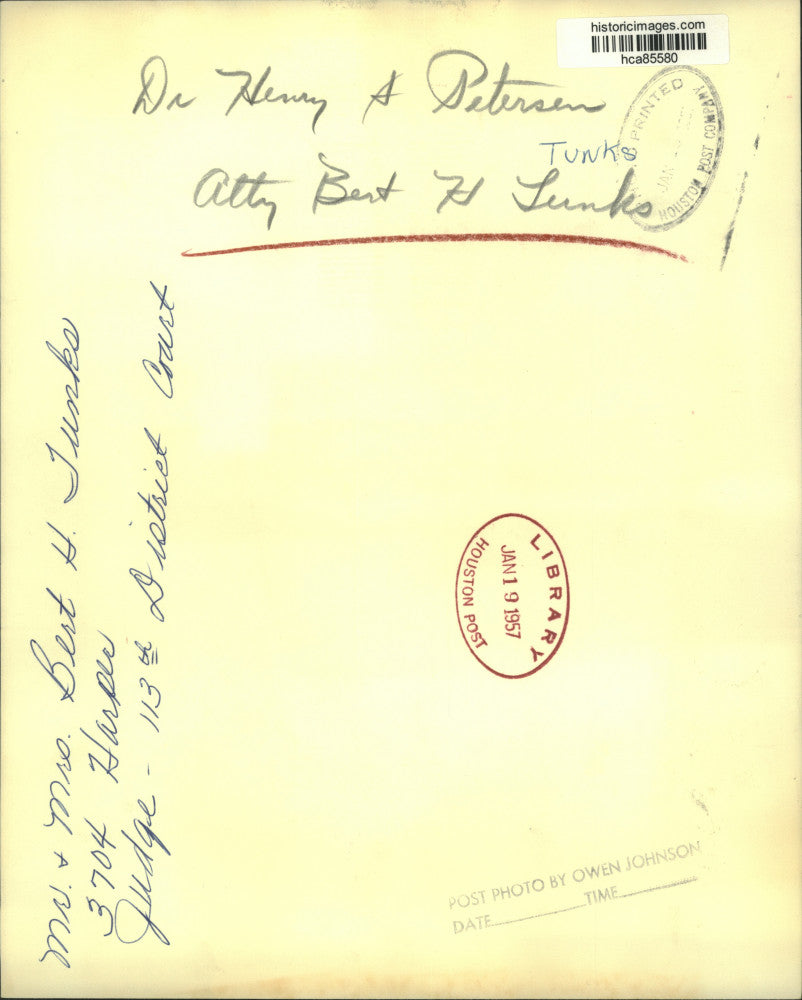 historicimages.com
hca85580
Dr Henry A Petersen
TUNKS
Atty Bert H Tunks
PRINTED
JAN
HOUSTON POST COMPANY
Mr. & Mrs. Bert H. Tunks
3704 Harper
Judge - 113th District Court
LIBRARY
JAN 19 1957
HOUSTON POST
POST PHOTO BY OWEN JOHNSON
DATE TIME